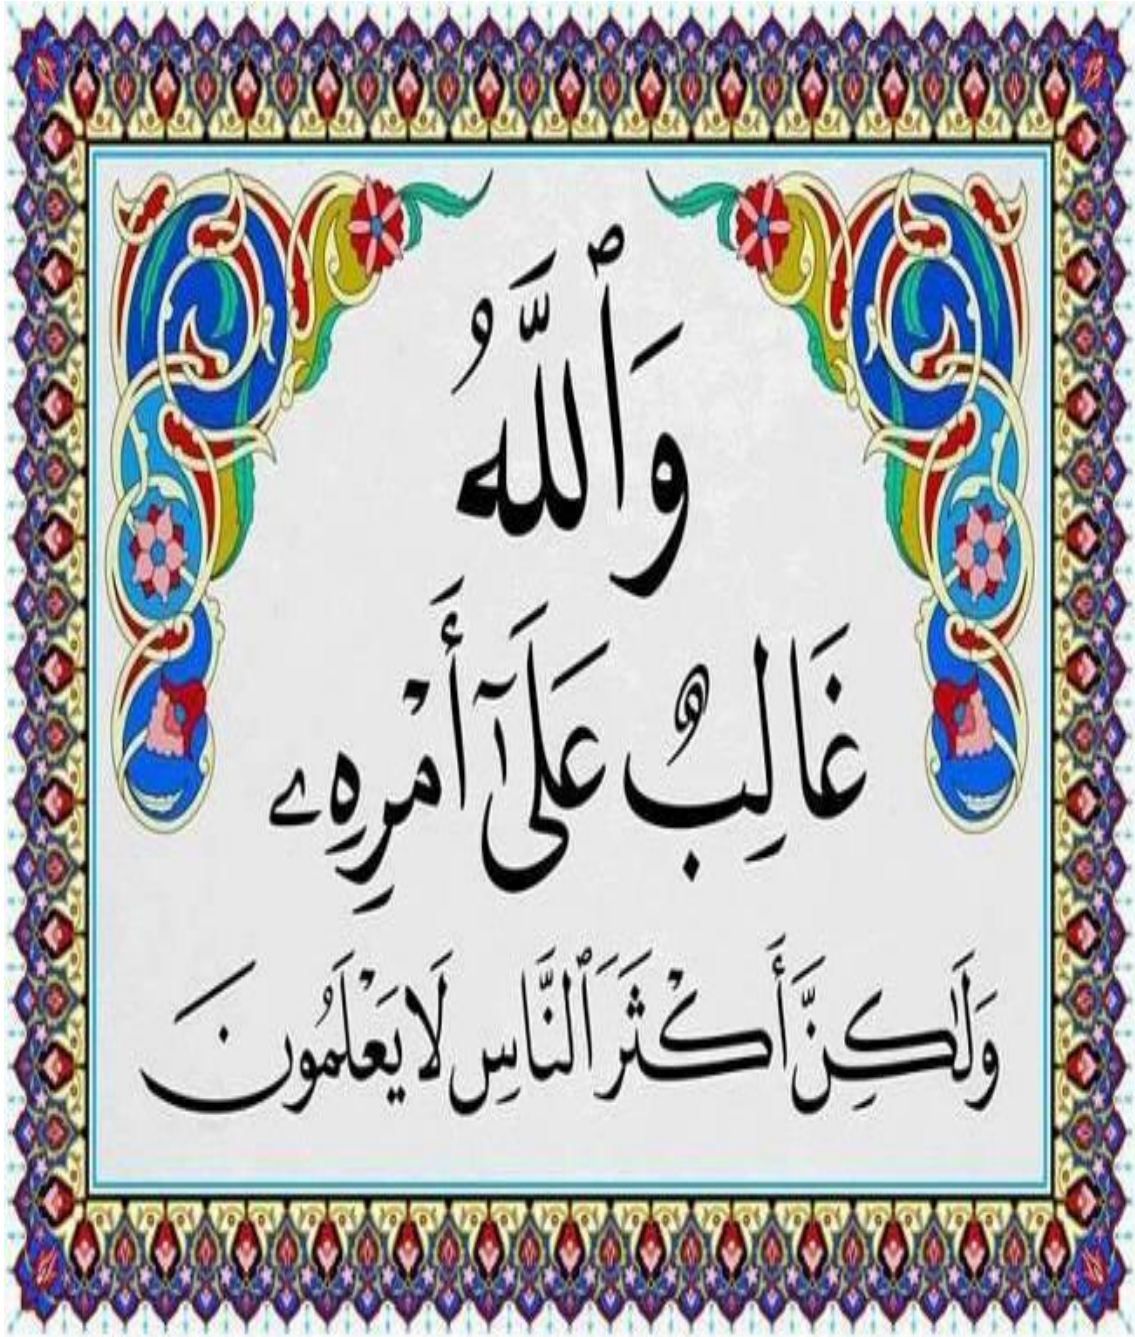 وَٱللَّهُ
غَالِبٌ عَلَىٰٓ أَمْرِهِۦ
وَلَـٰكِنَّ أَكْثَرَ ٱلنَّاسِ لَا يَعْلَمُونَ